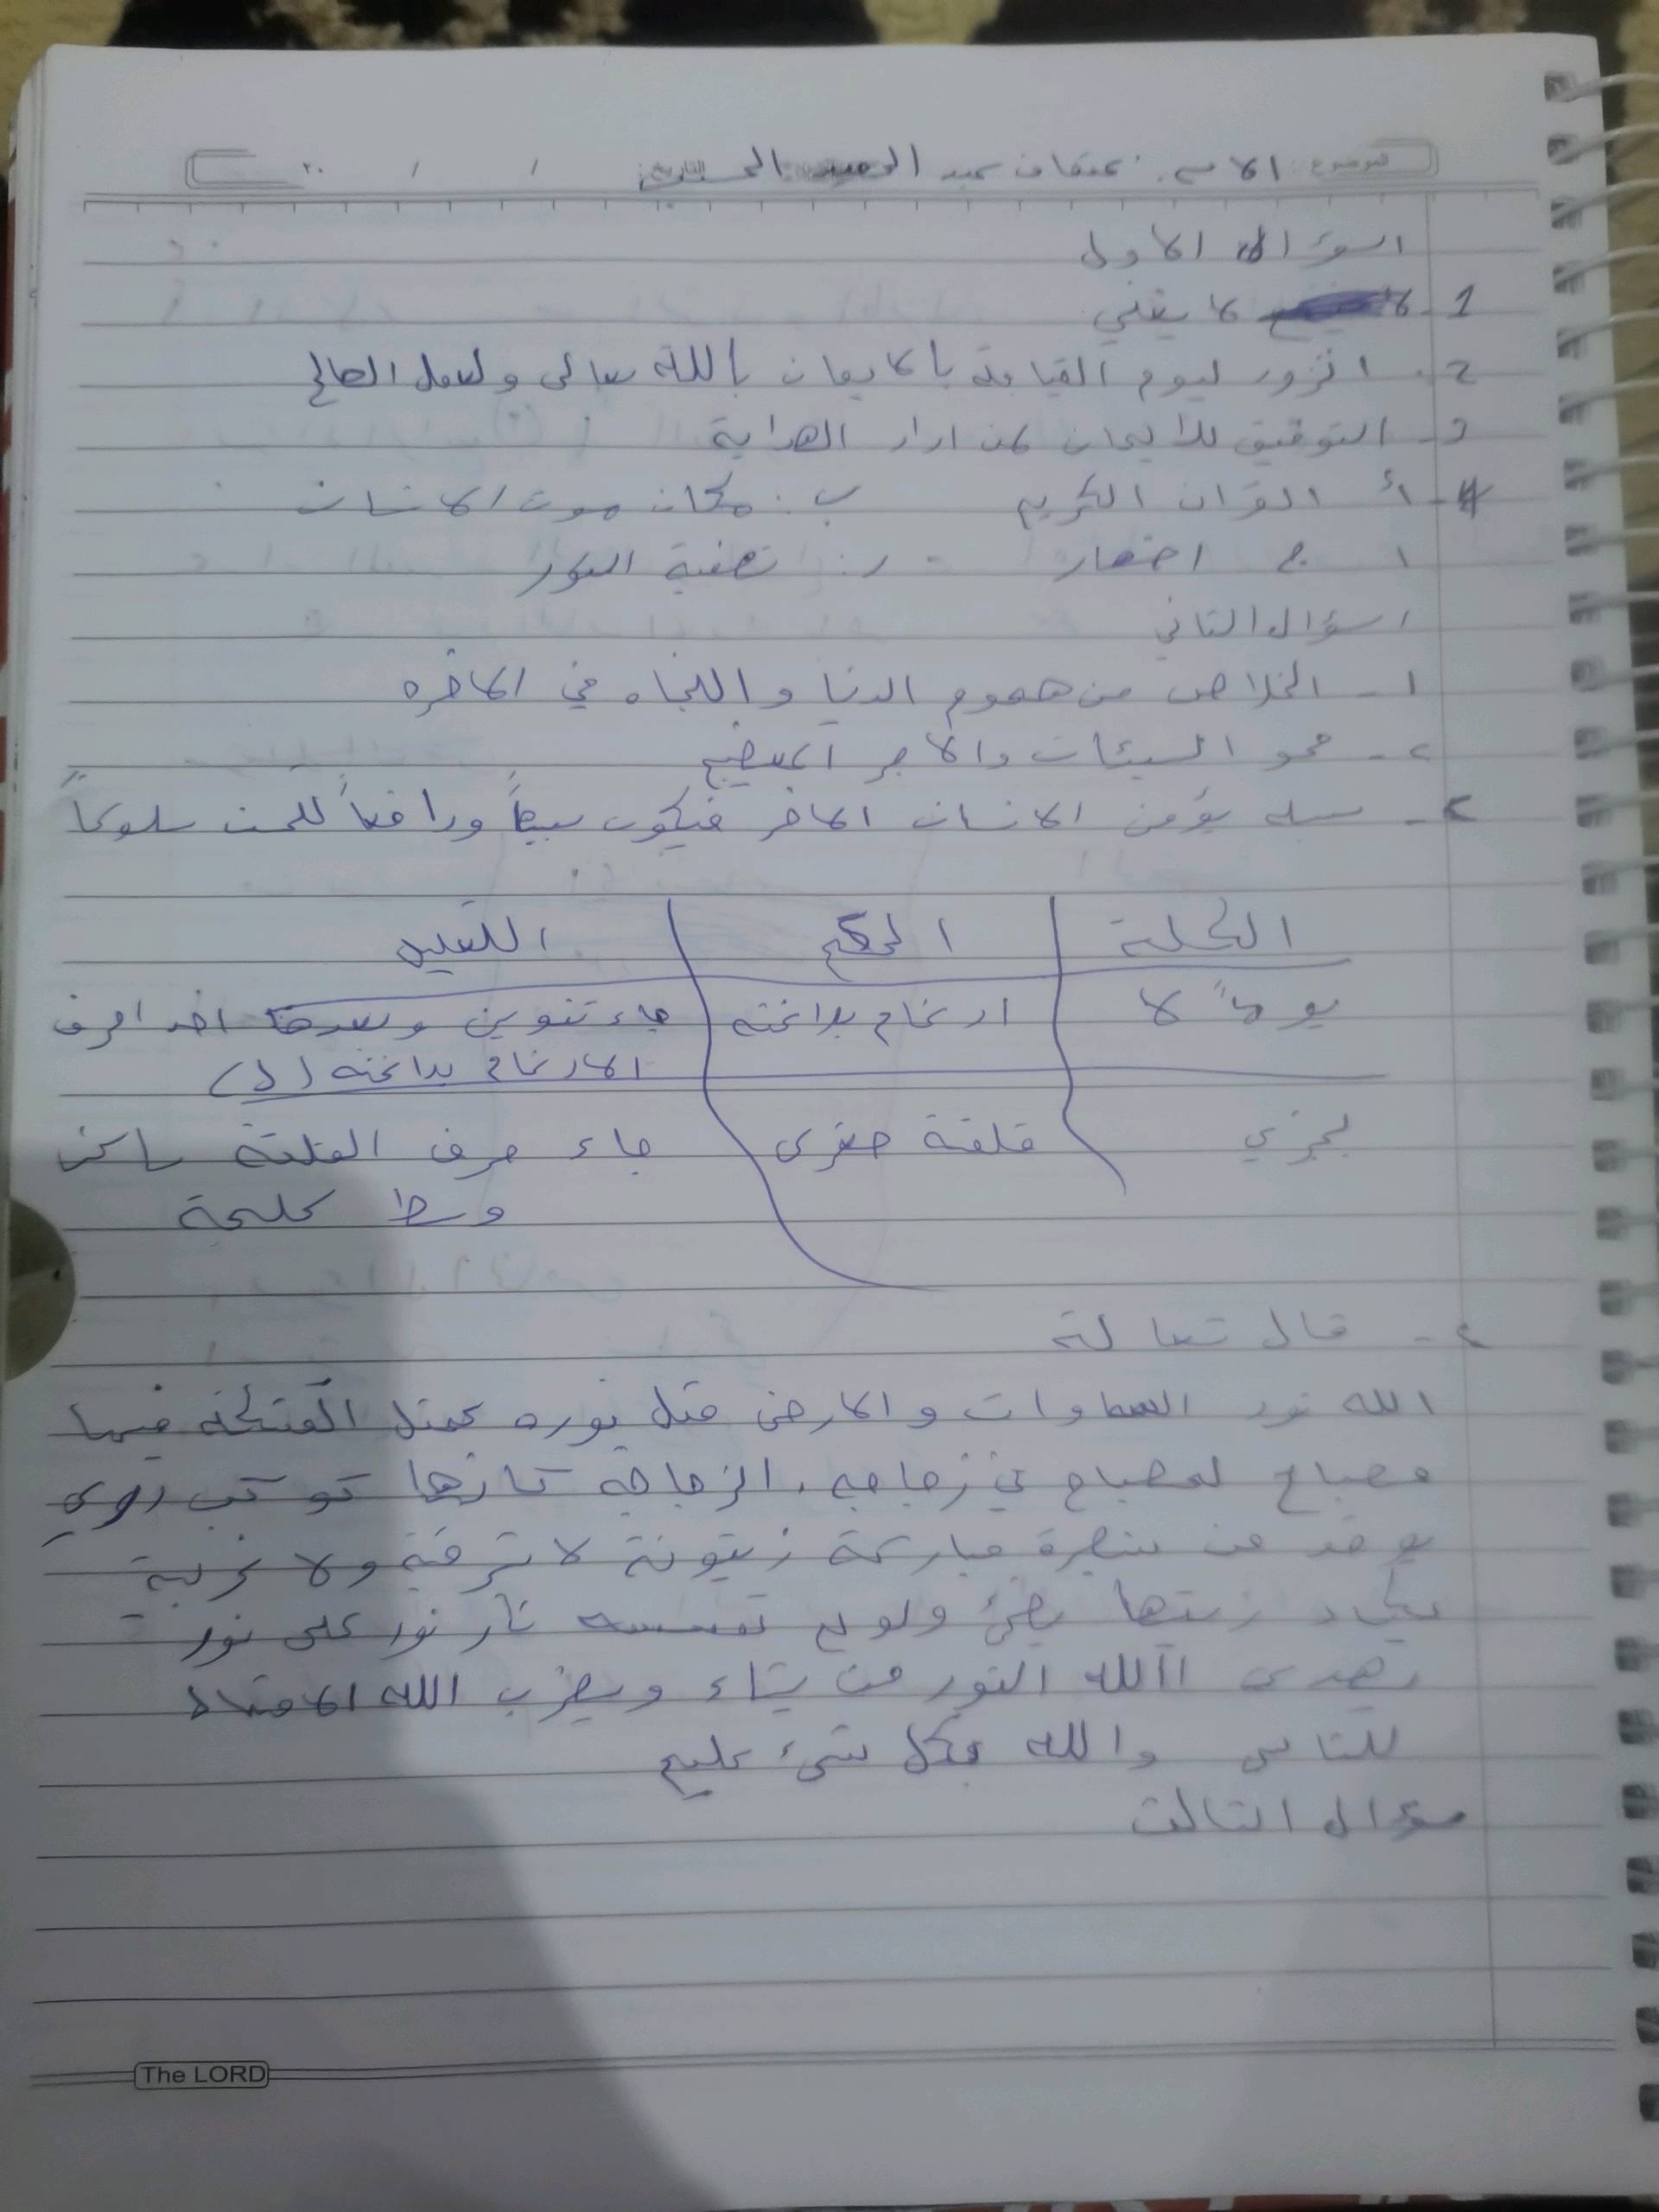 الموضوع: الاسم: عفاف عبد التاريخ: / / ٢٠
السؤال الاول
1- لا يغني
2- التزود ليوم القيامة بالايمان بالله تعالى ولعمل الصالح
3- التوفيق للأيمان لمن اراد الهداية
4- أ القران الكريم ب. مكان موت الانسان
ج احضار د. تصفية
اسؤال الثاني
١- الخلاص من هموم الدنيا والنجاه في الاخره
٢- محو السيئات والاجر العضيم
سلوكاً للحث ودافعاً فيكون الاخر الانسان يؤمن
الكلمة الحكم التعليل
يوماً لا ادغام بلاغنه جاء تنوين وبعدها احد احرف
الادغام بلاغنه (ل)
يجزي قلقة صغرى جاء حرف القلقة ساكن
وسط كلمة
٤- قال تعالة
الله نور السماوات والارض مثل نوره كمثل المشكاة فيها
مصباح لمصباح في زجاجه. الزجاجة كانها كوكب دري
يوقد من شجرة مباركة زيتونة لا شرقية ولا غربية
يكاد زيتها يضئ ولولم تمسسه نار نور على نور
يهدي الله النور من يشاء ويضرب الله الامثال
للناس والله بكل شئ عليم
سؤال الثالث
The LORD